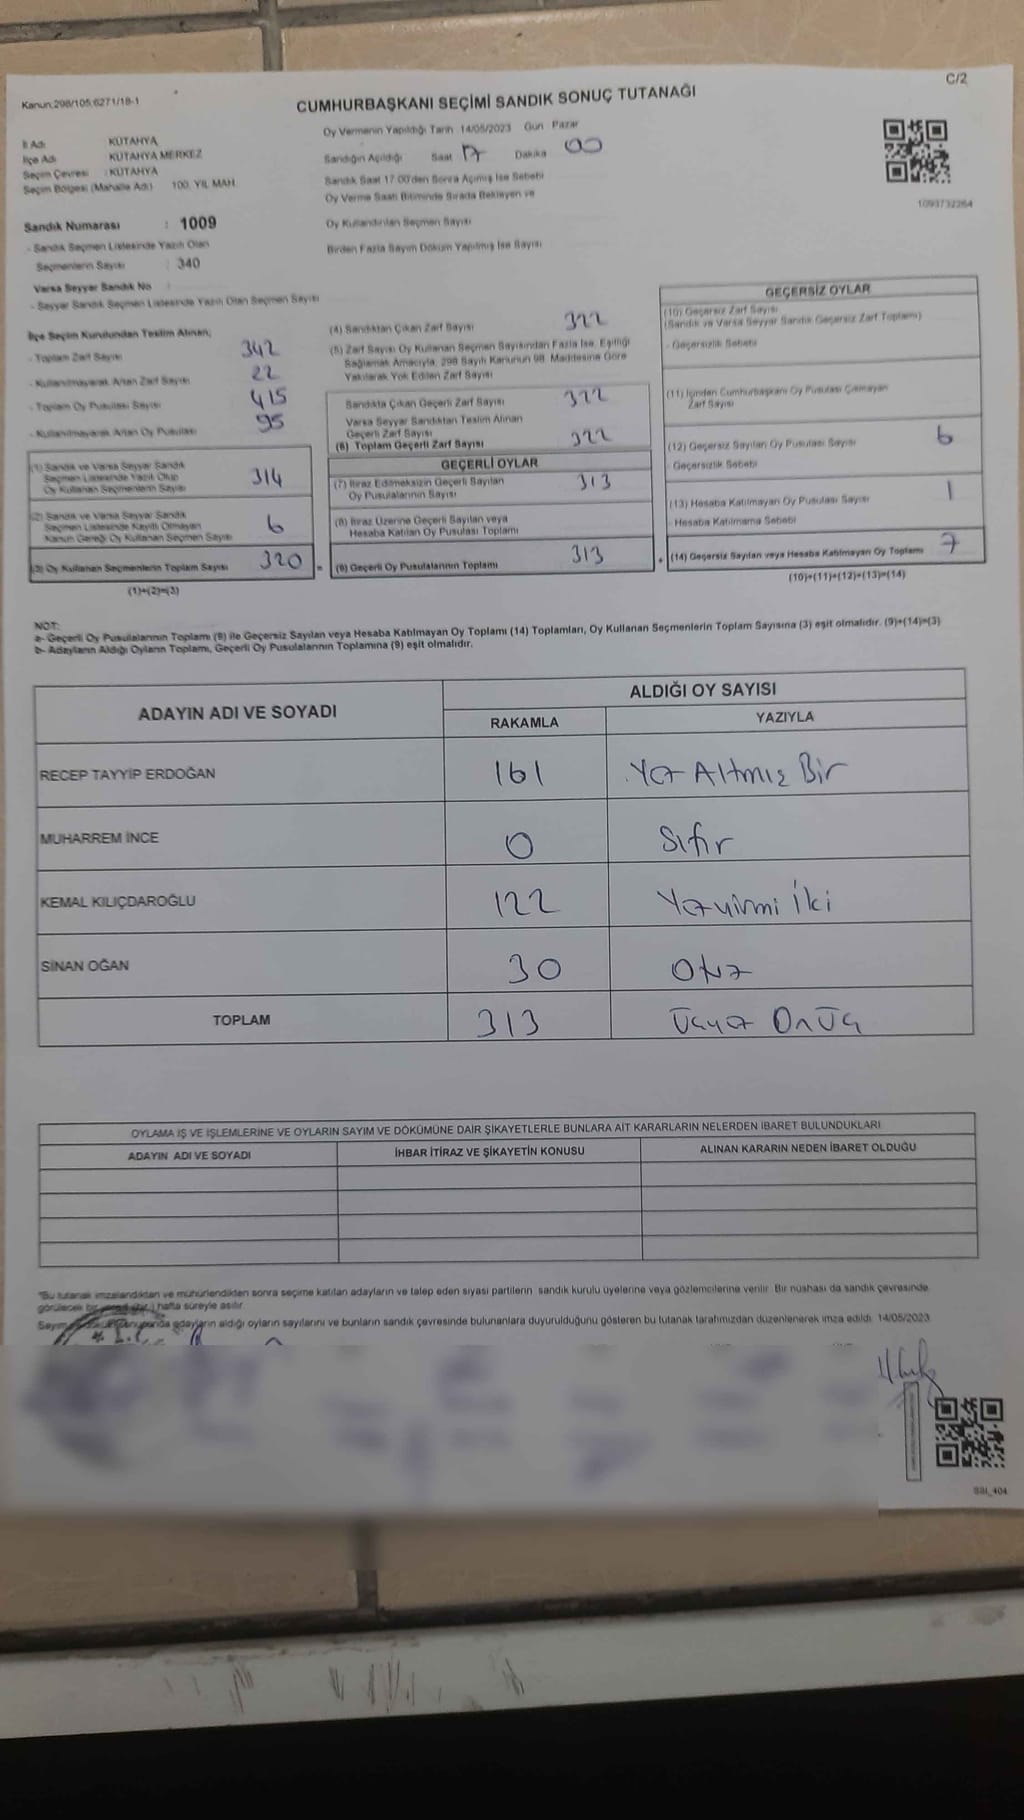 C/2
Kanun:298/105,6271/18-1
CUMHURBAŞKANI SEÇİMİ SANDIK SONUÇ TUTANAĞI
İl Adı KÜTAHYA
İlçe Adı KÜTAHYA MERKEZ
Seçim Çevresi : KÜTAHYA
Seçim Bölgesi (Mahalle Adı) 100. YIL MAH.
Oy Vermenin Yapıldığı Tarih 14/05/2023 Gün Pazar
Sandığın Açıldığı Saat 17 Dakika 00
Sandık Saat 17:00'den Sonra Açılmış İse Sebebi
Oy Verme Saati Bitiminde Sırada Bekleyen ve
Oy Kullandırılan Seçmen Sayısı
Birden Fazla Sayım Döküm Yapılmış İse Sayısı
1093732264
Sandık Numarası : 1009
- Sandık Seçmen Listesinde Yazılı Olan
Seçmenlerin Sayısı : 340
Varsa Seyyar Sandık No :
- Seyyar Sandık Seçmen Listesinde Yazılı Olan Seçmen Sayısı
İlçe Seçim Kurulundan Teslim Alınan;
- Toplam Zarf Sayısı 342
- Kullanılmayarak Artan Zarf Sayısı 22
- Toplam Oy Pusulası Sayısı 415
- Kullanılmayarak Artan Oy Pusulası 95
(1) Sandık ve Varsa Seyyar Sandık
Seçmen Listesinde Yazılı Olup
Oy Kullanan Seçmenlerin Sayısı 314
(2) Sandık ve Varsa Seyyar Sandık
Seçmen Listesinde Kayıtlı Olmayan
Kanun Gereği Oy Kullanan Seçmen Sayısı 6
(3) Oy Kullanan Seçmenlerin Toplam Sayısı 320 =
(1)+(2)=(3)
(4) Sandıktan Çıkan Zarf Sayısı 322
(5) Zarf Sayısı Oy Kullanan Seçmen Sayısından Fazla İse, Eşitliği
Sağlamak Amacıyla, 298 Sayılı Kanunun 98. Maddesine Göre
Yakılarak Yok Edilen Zarf Sayısı
Sandıkta Çıkan Geçerli Zarf Sayısı 322
Varsa Seyyar Sandıktan Teslim Alınan
Geçerli Zarf Sayısı
(6) Toplam Geçerli Zarf Sayısı 322
GEÇERLİ OYLAR
(7) İtiraz Edilmeksizin Geçerli Sayılan
Oy Pusulalarının Sayısı 313
(8) İtiraz Üzerine Geçerli Sayılan veya
Hesaba Katılan Oy Pusulası Toplamı
(9) Geçerli Oy Pusulalarının Toplamı 313 +
GEÇERSİZ OYLAR
(10) Geçersiz Zarf Sayısı
(Sandık ve Varsa Seyyar Sandık Geçersiz Zarf Toplamı)
- Geçersizlik Sebebi
(11) İçinden Cumhurbaşkanı Oy Pusulası Çıkmayan
Zarf Sayısı
(12) Geçersiz Sayılan Oy Pusulası Sayısı 6
- Geçersizlik Sebebi
(13) Hesaba Katılmayan Oy Pusulası Sayısı 1
- Hesaba Katılmama Sebebi
(14) Geçersiz Sayılan veya Hesaba Katılmayan Oy Toplamı 7
(10)+(11)+(12)+(13)=(14)
NOT:
a- Geçerli Oy Pusulalarının Toplamı (9) ile Geçersiz Sayılan veya Hesaba Katılmayan Oy Toplamı (14) Toplamları, Oy Kullanan Seçmenlerin Toplam Sayısına (3) eşit olmalıdır. (9)+(14)=(3)
b- Adayların Aldığı Oyların Toplamı, Geçerli Oy Pusulalarının Toplamına (9) eşit olmalıdır.
ADAYIN ADI VE SOYADI
ALDIĞI OY SAYISI
RAKAMLA YAZIYLA
RECEP TAYYİP ERDOĞAN 161 Yüz Altmış Bir
MUHARREM İNCE 0 Sıfır
KEMAL KILIÇDAROĞLU 122 Yüzyirmi İki
SİNAN OĞAN 30 Otuz
TOPLAM 313 Üçyüz Onüç
OYLAMA İŞ VE İŞLEMLERİNE VE OYLARIN SAYIM VE DÖKÜMÜNE DAİR ŞİKAYETLERLE BUNLARA AİT KARARLARIN NELERDEN İBARET BULUNDUKLARI
ADAYIN ADI VE SOYADI İHBAR İTİRAZ VE ŞİKAYETİN KONUSU ALINAN KARARIN NEDEN İBARET OLDUĞU
*Bu tutanak imzalandıktan ve mühürlendikten sonra seçime katılan adayların ve talep eden siyasi partilerin sandık kurulu üyelerine veya gözlemcilerine verilir. Bir nüshası da sandık çevresinde
görülecek bir hafta süreyle asılır.
adayların aldığı oyların sayılarını ve bunların sandık çevresinde bulunanlara duyurulduğunu gösteren bu tutanak tarafımızdan düzenlenerek imza edildi. 14/05/2023
SSI_404